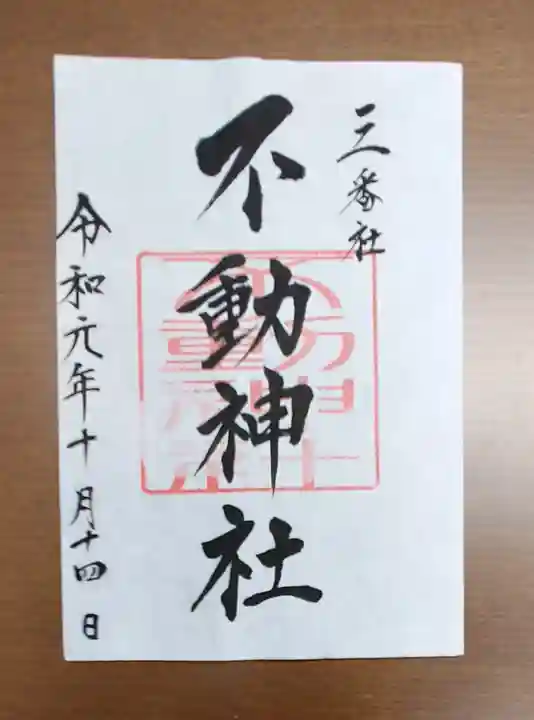 三番社
不動神社
令和元年十月十四日